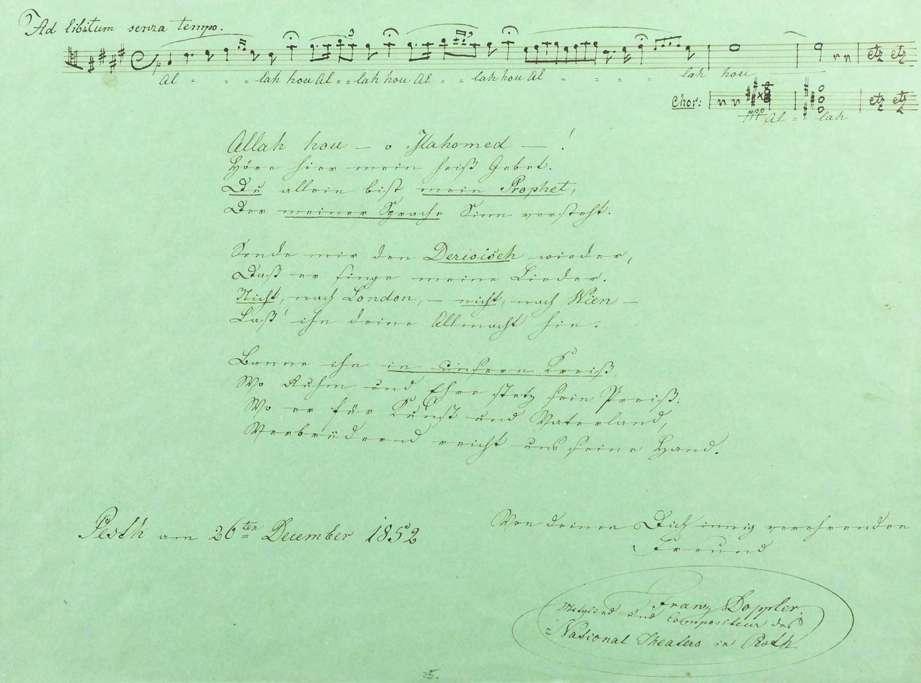 Ad libitum senza tempo.
Al - - - lah hou Al - - lah hou Al - - lah hou Al - - - - lah hou
etz etz
Chor: etz etz
Al - - lah
Allah hou — o Mahomed — !
Höre hier mein heiß Gebet.
Du allein bist mein Prophet,
Der meiner Sprache Sinn versteht.
Sende mir den Derwisch wieder,
Daß er singe meine Lieder.
Nicht, nach London, — nicht, nach Wien —
Laß' ihn deine Allmacht hin.
Banne ihn in unsern Kreiß
Wo Ruhm und Ehre stets sein Preiß.
Wo er für Kunst und Vaterland,
Verbrüdernd reicht uns seine Hand.
Pesth am 26ten December 1852
Von deinem Dich innig verehrenden
Freund
Franz Doppler
Mitglied und Compositeur des
National Theaters in Pesth